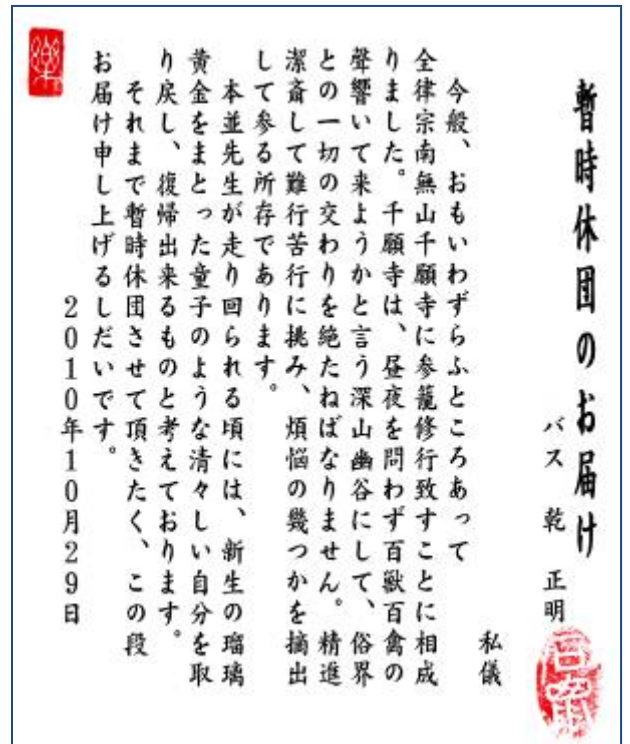 暫時休団のお届け
バス 乾 正明
私儀
今般、おもいわずらふところあって
全律宗南無山千願寺に参籠修行致すことに相成
りました。千願寺は、昼夜を問わず百獣百禽の
聲響いて来ようかと言う深山幽谷にして、俗界
との一切の交わりを絶たねばなりません。精進
潔斎して難行苦行に挑み、煩悩の幾つかを摘出
して参る所存であります。
本並先生が走り回られる頃には、新生の瑠璃
黄金をまとった童子のような清々しい自分を取
り戻し、復帰出来るものと考えております。
それまで暫時休団させて頂きたく、この段
お届け申し上げるしだいです。
2010年10月29日
樂